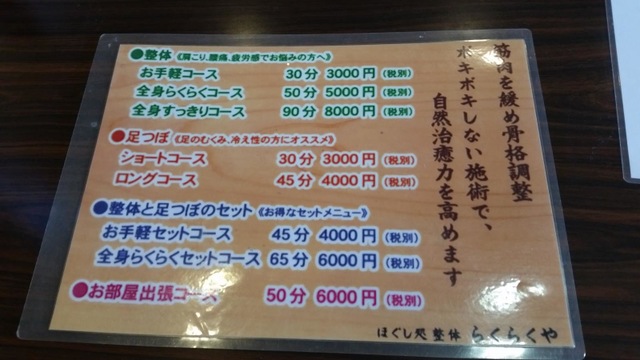 筋肉を緩め骨格調整
ボキボキしない施術で、
自然治癒力を高めます
●整体《肩こり、腰痛、疲労感でお悩みの方へ》
お手軽コース 30分 3000円(税別)
全身らくらくコース 50分 5000円(税別)
全身すっきりコース 90分 8000円(税別)
●足つぼ《足のむくみ、冷え性の方にオススメ》
ショートコース 30分 3000円(税別)
ロングコース 45分 4000円(税別)
●整体と足つぼのセット《お得なセットメニュー》
お手軽セットコース 45分 4000円(税別)
全身らくらくセットコース 65分 6000円(税別)
●お部屋出張コース 50分 6000円(税別)
ほぐし処 整体 らくらくや